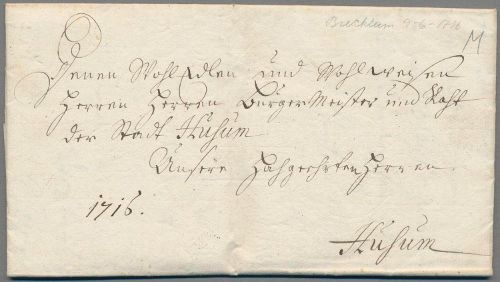 Breklum 9-6-1716
M
Denen WohlEdlen und Wohlweisen
Herren Herren BürgerMeister und Raht
der Stadt Husum
Unsere Hochgeehrten Herren.
1716.
Husum